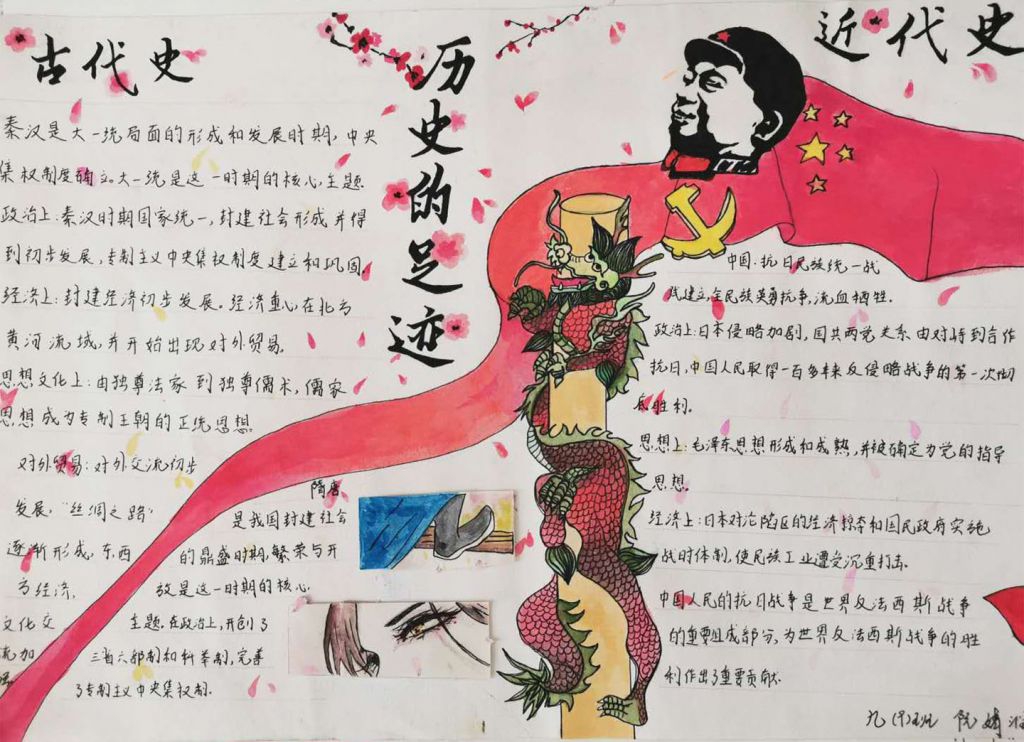 古代史
历史的足迹
近代史
秦汉是大一统局面的形成和发展时期,中央
集权制度确立。大一统是这一时期的核心主题.
政治上:秦汉时期国家统一,封建社会形成并得
到初步发展,专制主义中央集权制度建立和巩固,
经济上:封建经济初步发展.经济重心在北方
黄河流域,并开始出现对外贸易.
思想文化上:由独尊法家到独尊儒术,儒家
思想成为专制王朝的正统思想.
对外贸易:对外交流初步
发展,“丝绸之路”
逐渐形成,东西
方经济,
文化交
流加
隋唐
是我国封建社会
的鼎盛时期,繁荣与开
放是这一时期的核心
主题.在政治上,开创了
三省六部制和科举制,完善
了专制主义中央集权制.
中国:抗日民族统一战
建立,全民族英勇抗争,流血牺牲.
政治上:日本侵略加剧,国共两党关系由对峙到合作
抗日,中国人民取得一百多年来反侵略战争的第一次彻
底胜利.
思想上:毛泽东思想形成和成熟,并被确定为党的指导
思想.
经济上:日本对沦陷区的经济掠夺和国民政府实施
战时体制,使民族工业遭受沉重打击.
中国人民的抗日战争是世界反法西斯战争
的重要组成部分,为世界反法西斯战争的胜
利作出了重要贡献.